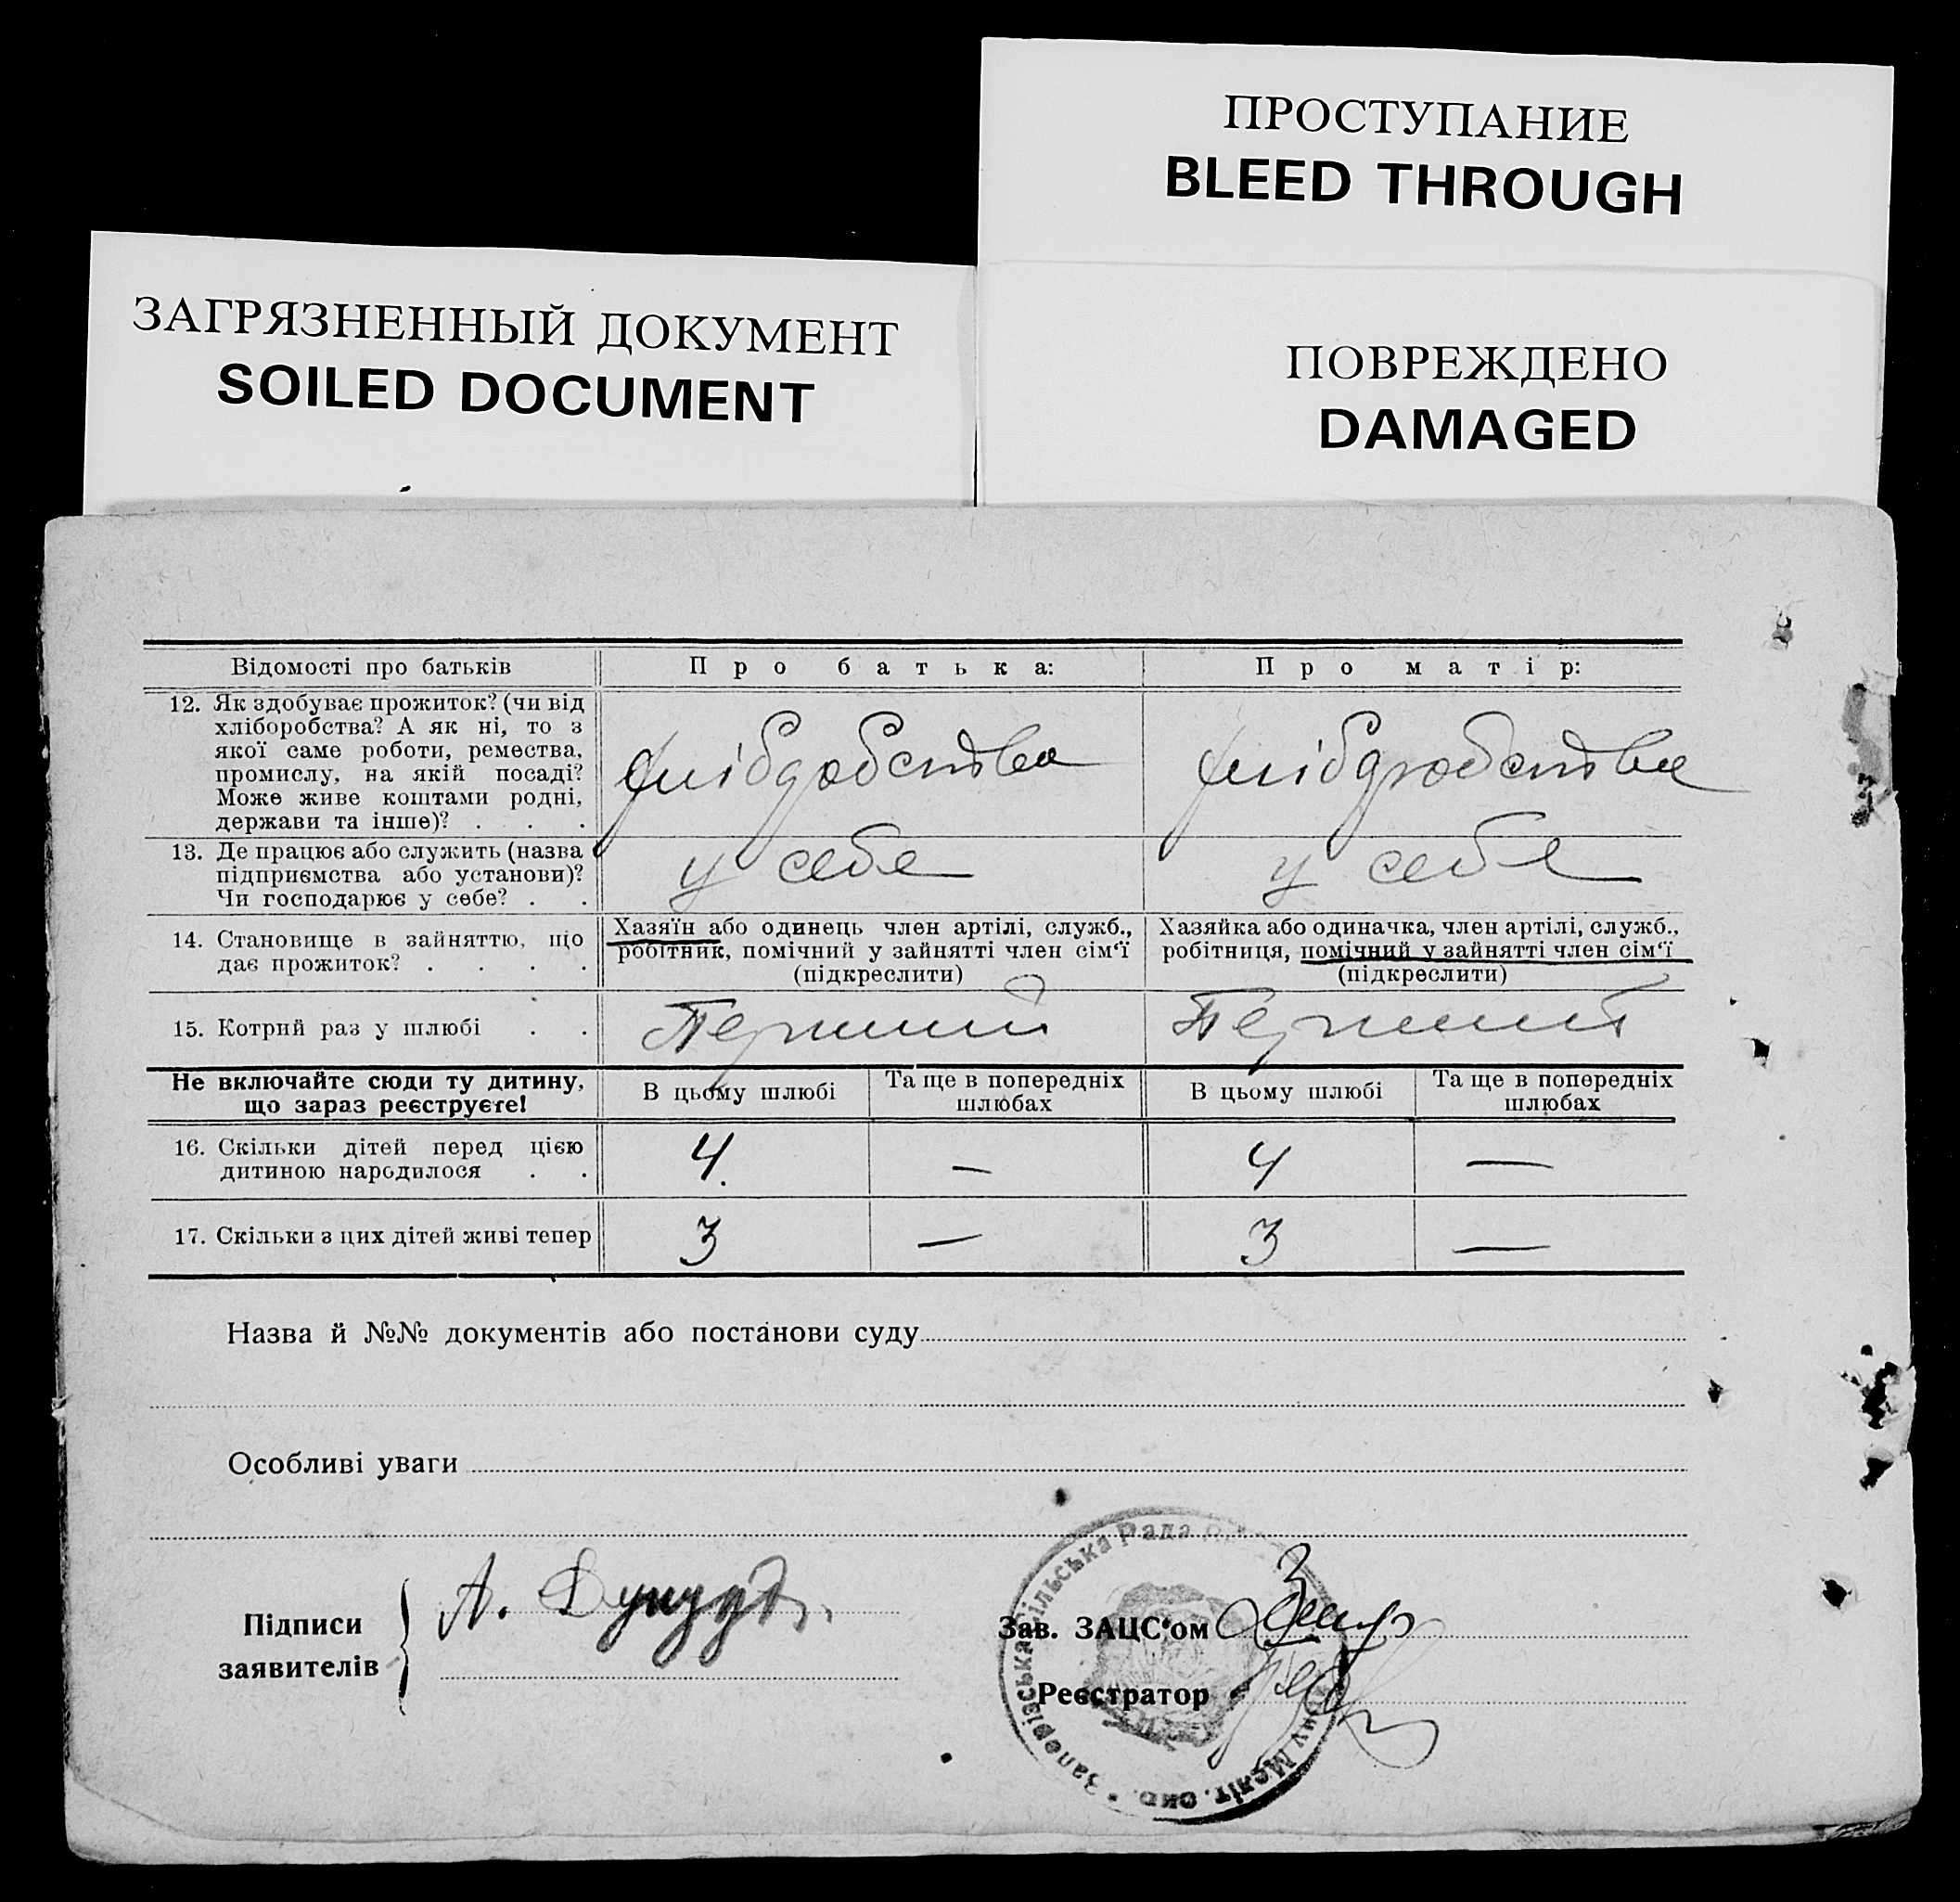 ПРОСТУПАНИЕ
BLEED THROUGH
ЗАГРЯЗНЕННЫЙ ДОКУМЕНТ
SOILED DOCUMENT
ПОВРЕЖДЕНО
DAMAGED
Відомості про батьків
Про батька:
Про матір:
12. Як здобуває прожиток? (чи від
хліборобства? А як ні, то з
якої саме роботи, ремества,
промислу, на якій посаді?
Може живе коштами родні,
держави та інше)? . . .
13. Де працює або служить (назва
підприємства або установи)?
Чи господарює у себе? . .
у себе
у себе
14. Становище в зайняттю, що
дає прожиток? . . . .
Хазяїн або одинець член артілі, служб.,
робітник, помічний у зайнятті член сім‘ї
(підкреслити)
Хазяйка або одиначка, член артілі, служб.,
робітниця, помічний у зайнятті член сім‘ї
(підкреслити)
15. Котрий раз у шлюбі . .
Перший
Перший
Не включайте сюди ту дитину,
що зараз реєструєте!
В цьому шлюбі
Та ще в попередніх
шлюбах
В цьому шлюбі
Та ще в попередніх
шлюбах
16. Скільки дітей перед цією
дитиною народилося . .
4. — 4 —
17. Скільки з цих дітей живі тепер
3 — 3 —
Назва й №№ документів або постанови суду
Особливі уваги
Підписи
заявителів
А.
Зав. ЗАЦС‘ом
Реєстратор
сільська Рада
Меліт. окр.